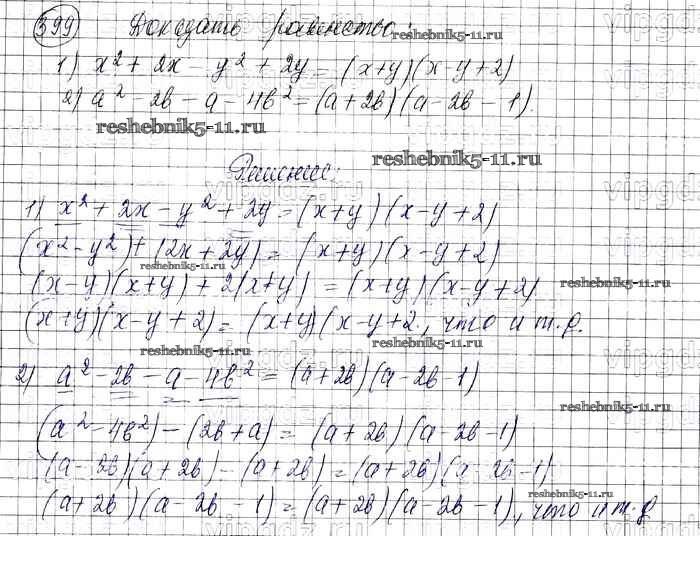 399 Доказать равенство:
1) x² + 2x - y² + 2y = (x+y)(x-y+2)
2) a² - 2b - a - 4b² = (a+2b)(a-2b-1).
Решение:
1) x² + 2x - y² + 2y = (x+y)(x-y+2)
(x² - y²) + (2x + 2y) = (x+y)(x-y+2)
(x-y)(x+y) + 2(x+y) = (x+y)(x-y+2)
(x+y)(x-y+2) = (x+y)(x-y+2, что и т.д.
2) a² - 2b - a - 4b² = (a+2b)(a-2b-1)
(a² - 4b²) - (2b+a) = (a+2b)(a-2b-1)
(a-2b)(a+2b) - (a+2b) = (a+2b)(a-2b-1)
(a+2b)(a-2b-1) = (a+2b)(a-2b-1), что и т.д
reshebnik5-11.ru
reshebnik5-11.ru
reshebnik5-11.ru
reshebnik5-11.ru
reshebnik5-11.ru
reshebnik5-11.ru
reshebnik5-11.ru
reshebnik5-11.ru
reshebnik5-11.ru